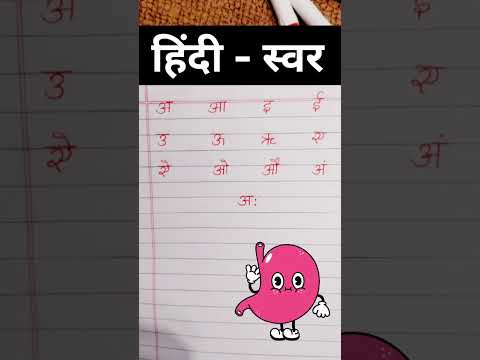 हिंदी - स्वर
अ आ इ ई
उ ऊ ऋ ए
ऐ ओ औ अं
अ: